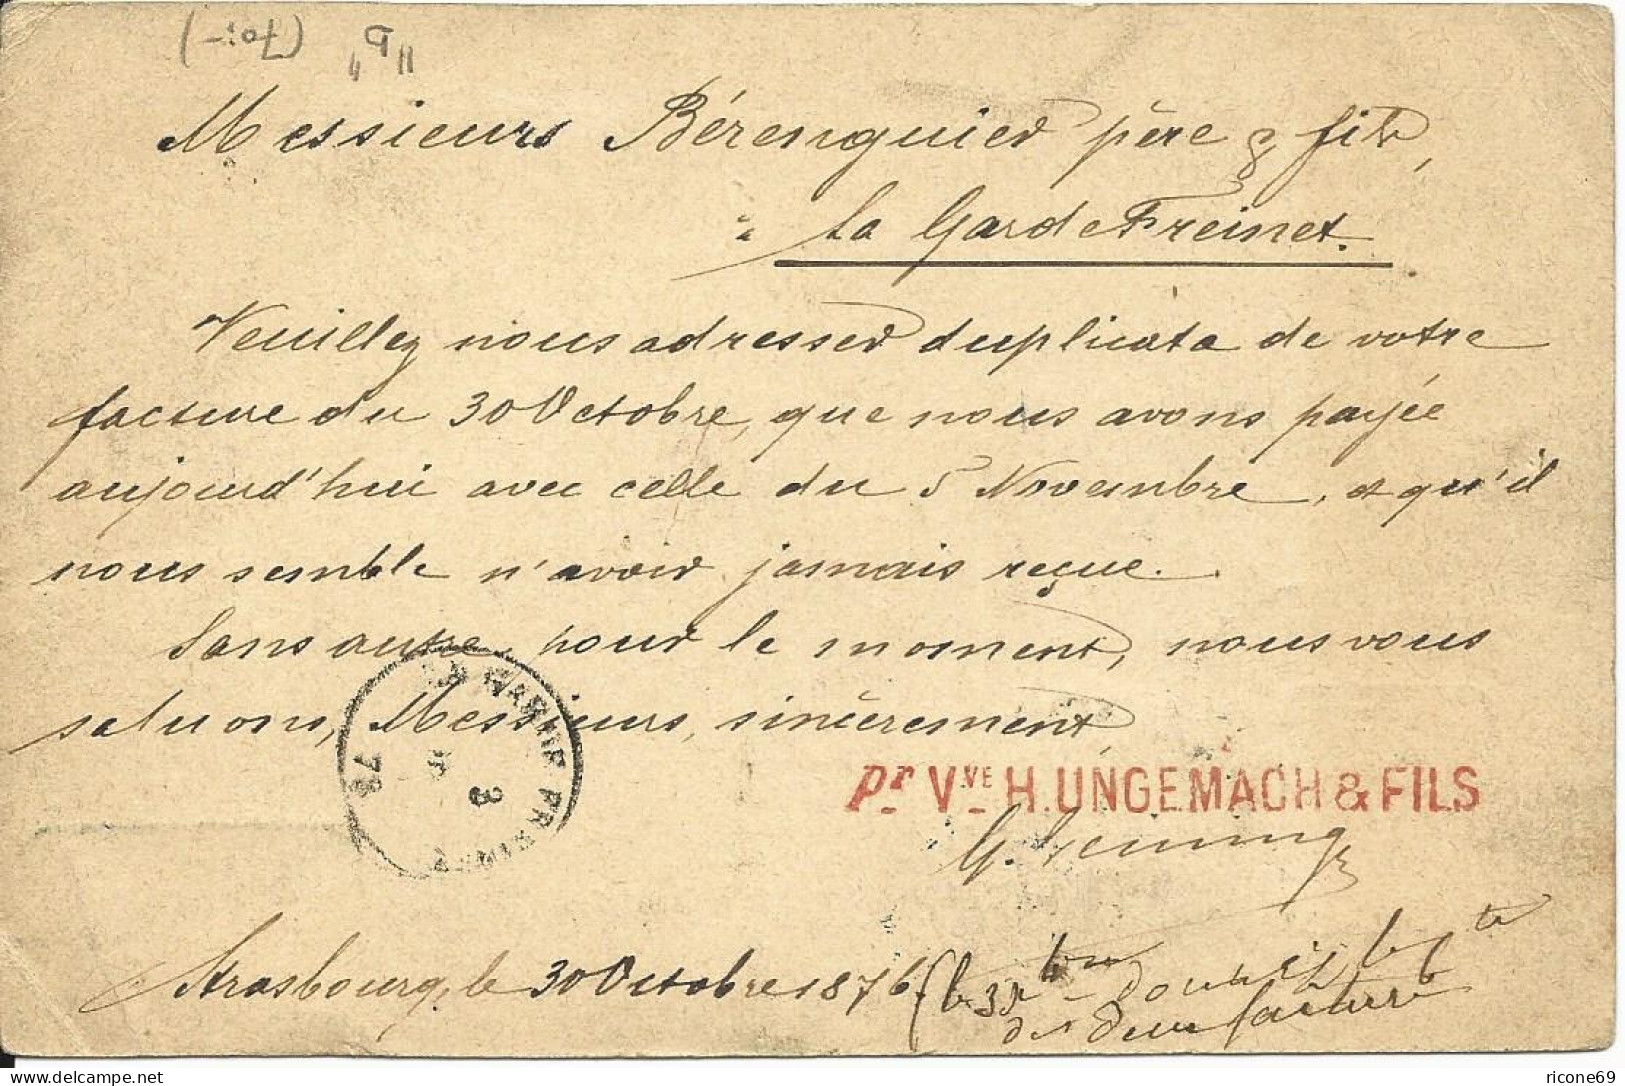 (70.-) "P"
Messieurs Bérenguier père & fils,
à La Garde Freinet.
Veuillez nous adresser duplicata de votre
facture du 30 Octobre, que nous avons payée
aujourd'hui avec celle du 5 Novembre, et qu'il
nous semble n'avoir jamais reçue.
Sans autre pour le moment, nous vous
saluons, Messieurs, sincèrement
LA GARDE FREINET
3
76
Pr VVE H. UNGEMACH & FILS
Strasbourg, le 30 Octobre 1876.
des deux factures
delcampe.net
ricone69